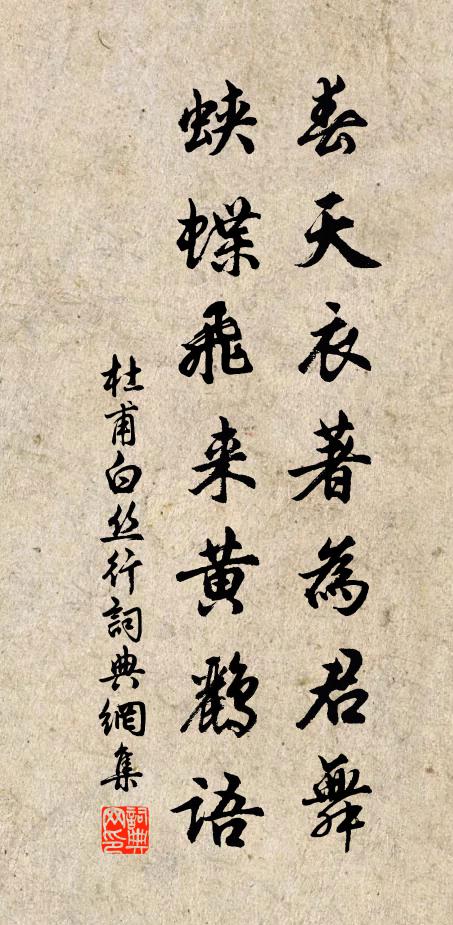 春天衣著為君舞
蛺蝶飛来黄鸝語
杜甫白丝行詞典網集
詞典网印